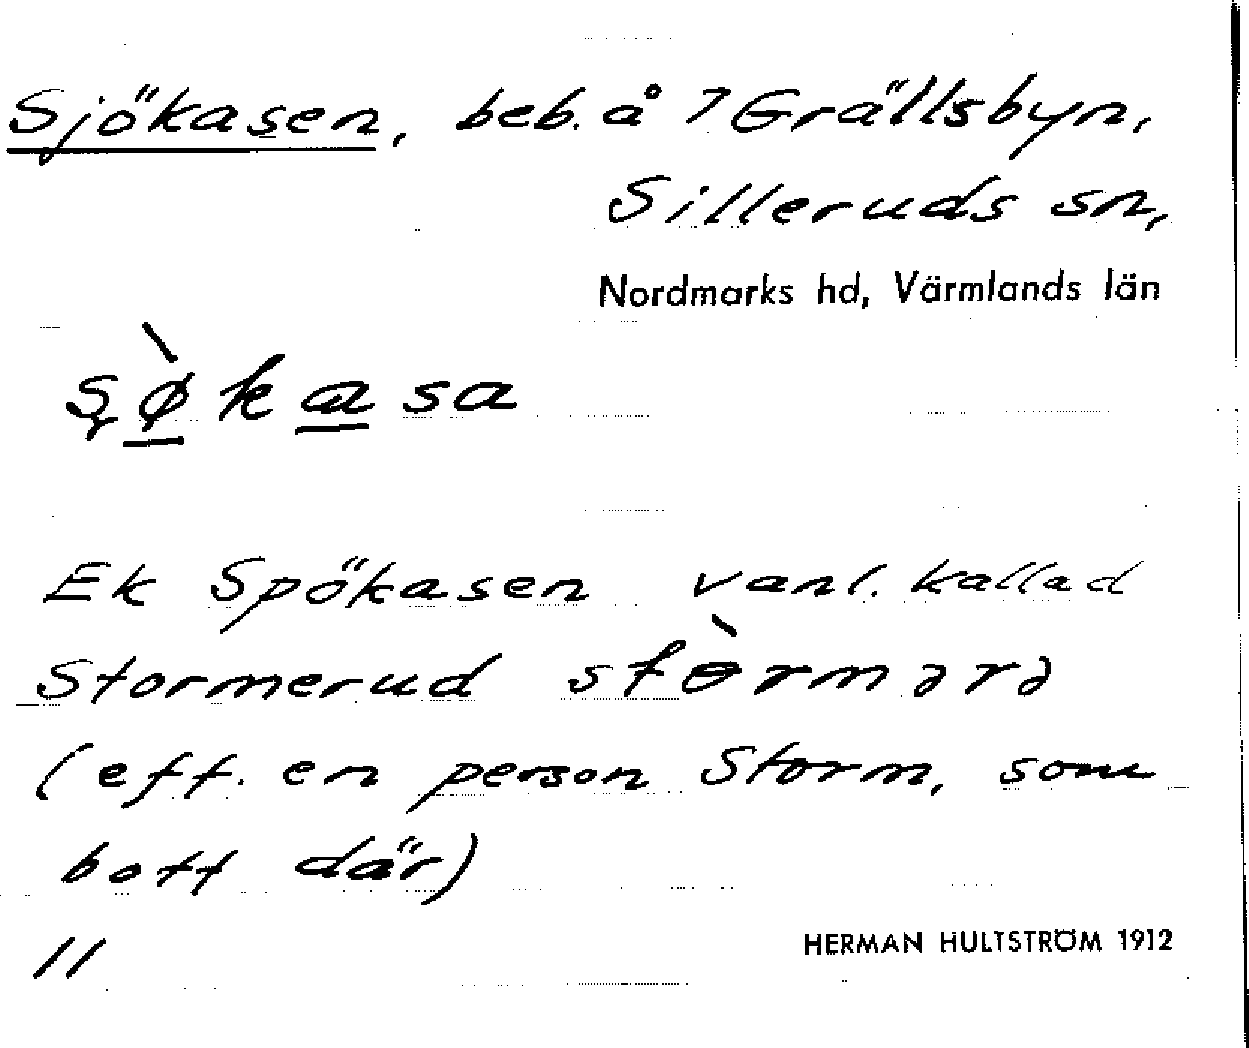 Sjökasen, beb. å 7 Grällsbyn,
Silleruds sn,
Nordmarks hd, Värmlands län
ş ø̀ k a sa
Ek Spökasen vanl. kallad
Stormerud stɵ̀rmərə
(eft. en person Storm, som
bott där)
11
HERMAN HULTSTRÖM 1912